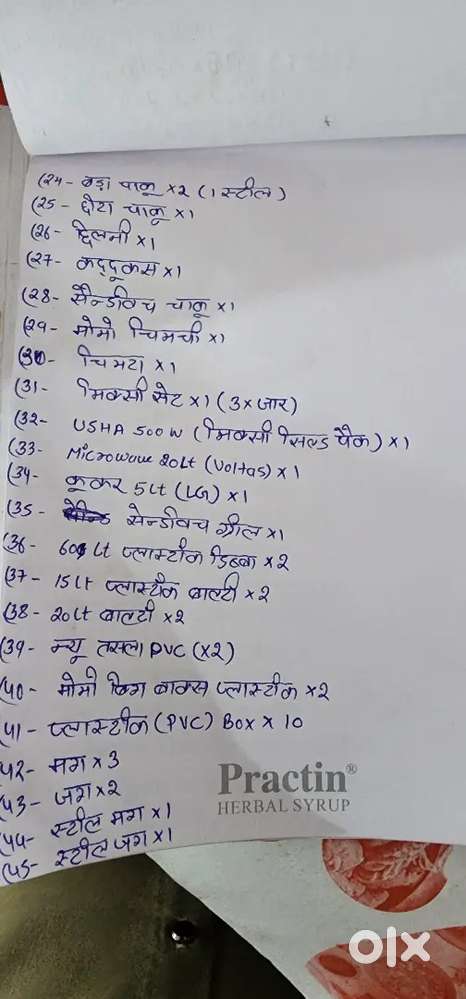 (24- बड़ा चाकू x2 (1 स्टील)
(25- छोटा चाकू x1
(26- छिलनी x1
(27- कद्दूकस x1
(28- सैन्डविच चाकू x1
(29- मोमो चिमची x1
(30- चिमटा x1
(31- मिक्सी सेट x1 (3xजार)
(32- USHA 500W (मिक्सी सिल्ड पैक) x1
(33- Microwave 20Lt (Voltas) x1
(34- कूकर 5Lt (LG) x1
(35- सेन्डविच ग्रील x1
(36- 60 Lt प्लास्टीक डिब्बा x2
(37- 15Lt प्लास्टीक बाल्टी x2
(38- 20Lt बाल्टी x2
(39- न्यू तसला PVC (x2)
(40- मोमो बाक्स प्लास्टीक x2
(41- प्लास्टीक (PVC) Box x 10
(42- मग x3
(43- जग x2
(44- स्टील मग x1
(45- स्टील जग x1
Practin®
HERBAL SYRUP
olx